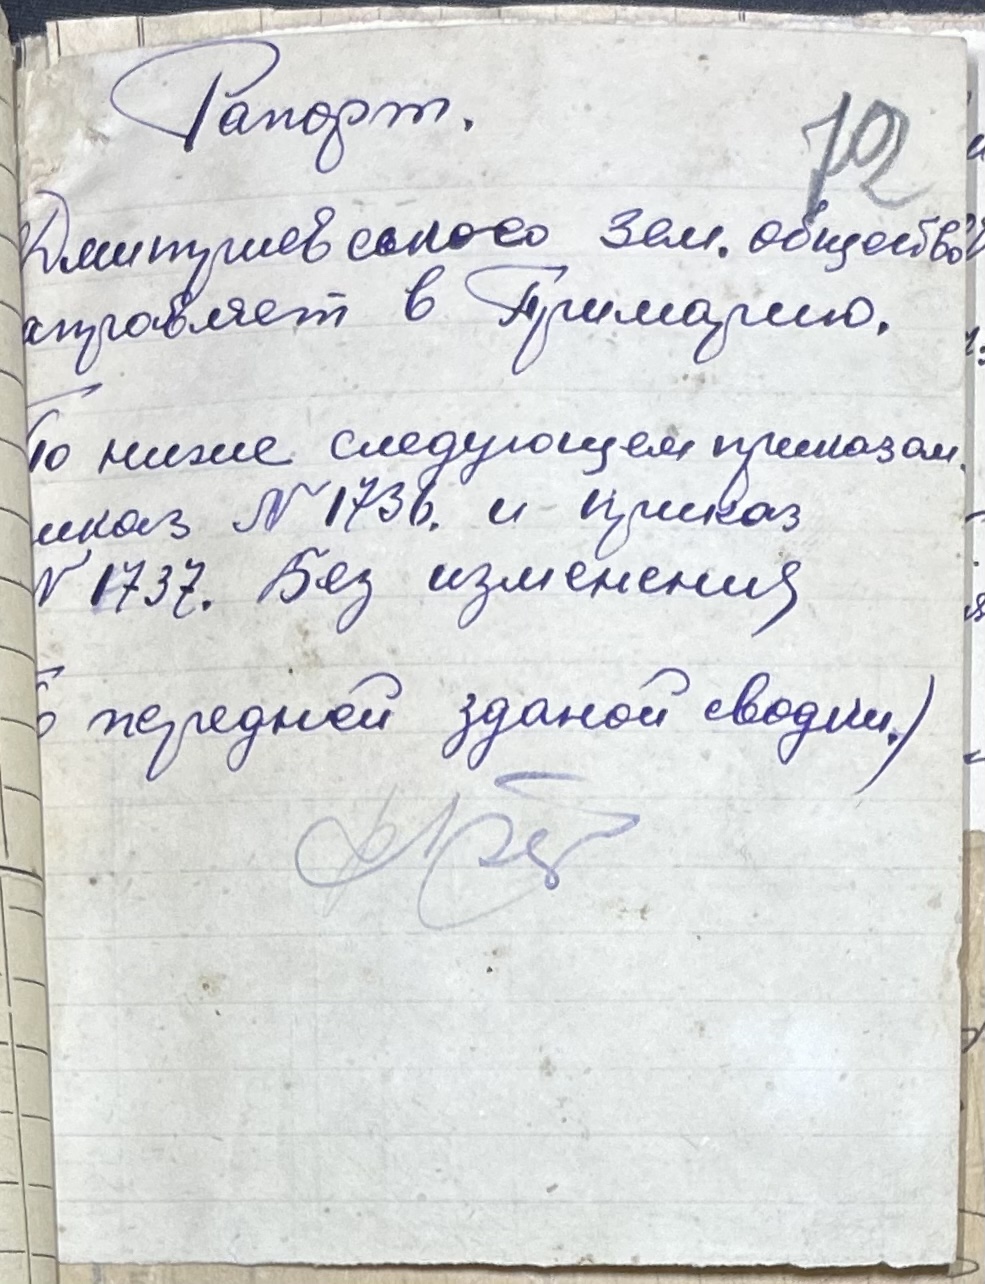 Рапорт.
72
Дмитриевского Зем. общество
аправляет в Примарию.
По ниже следующем приказам.
иказ № 1736. и приказ
№ 1737. Без изменения
передней зданой сводки.)